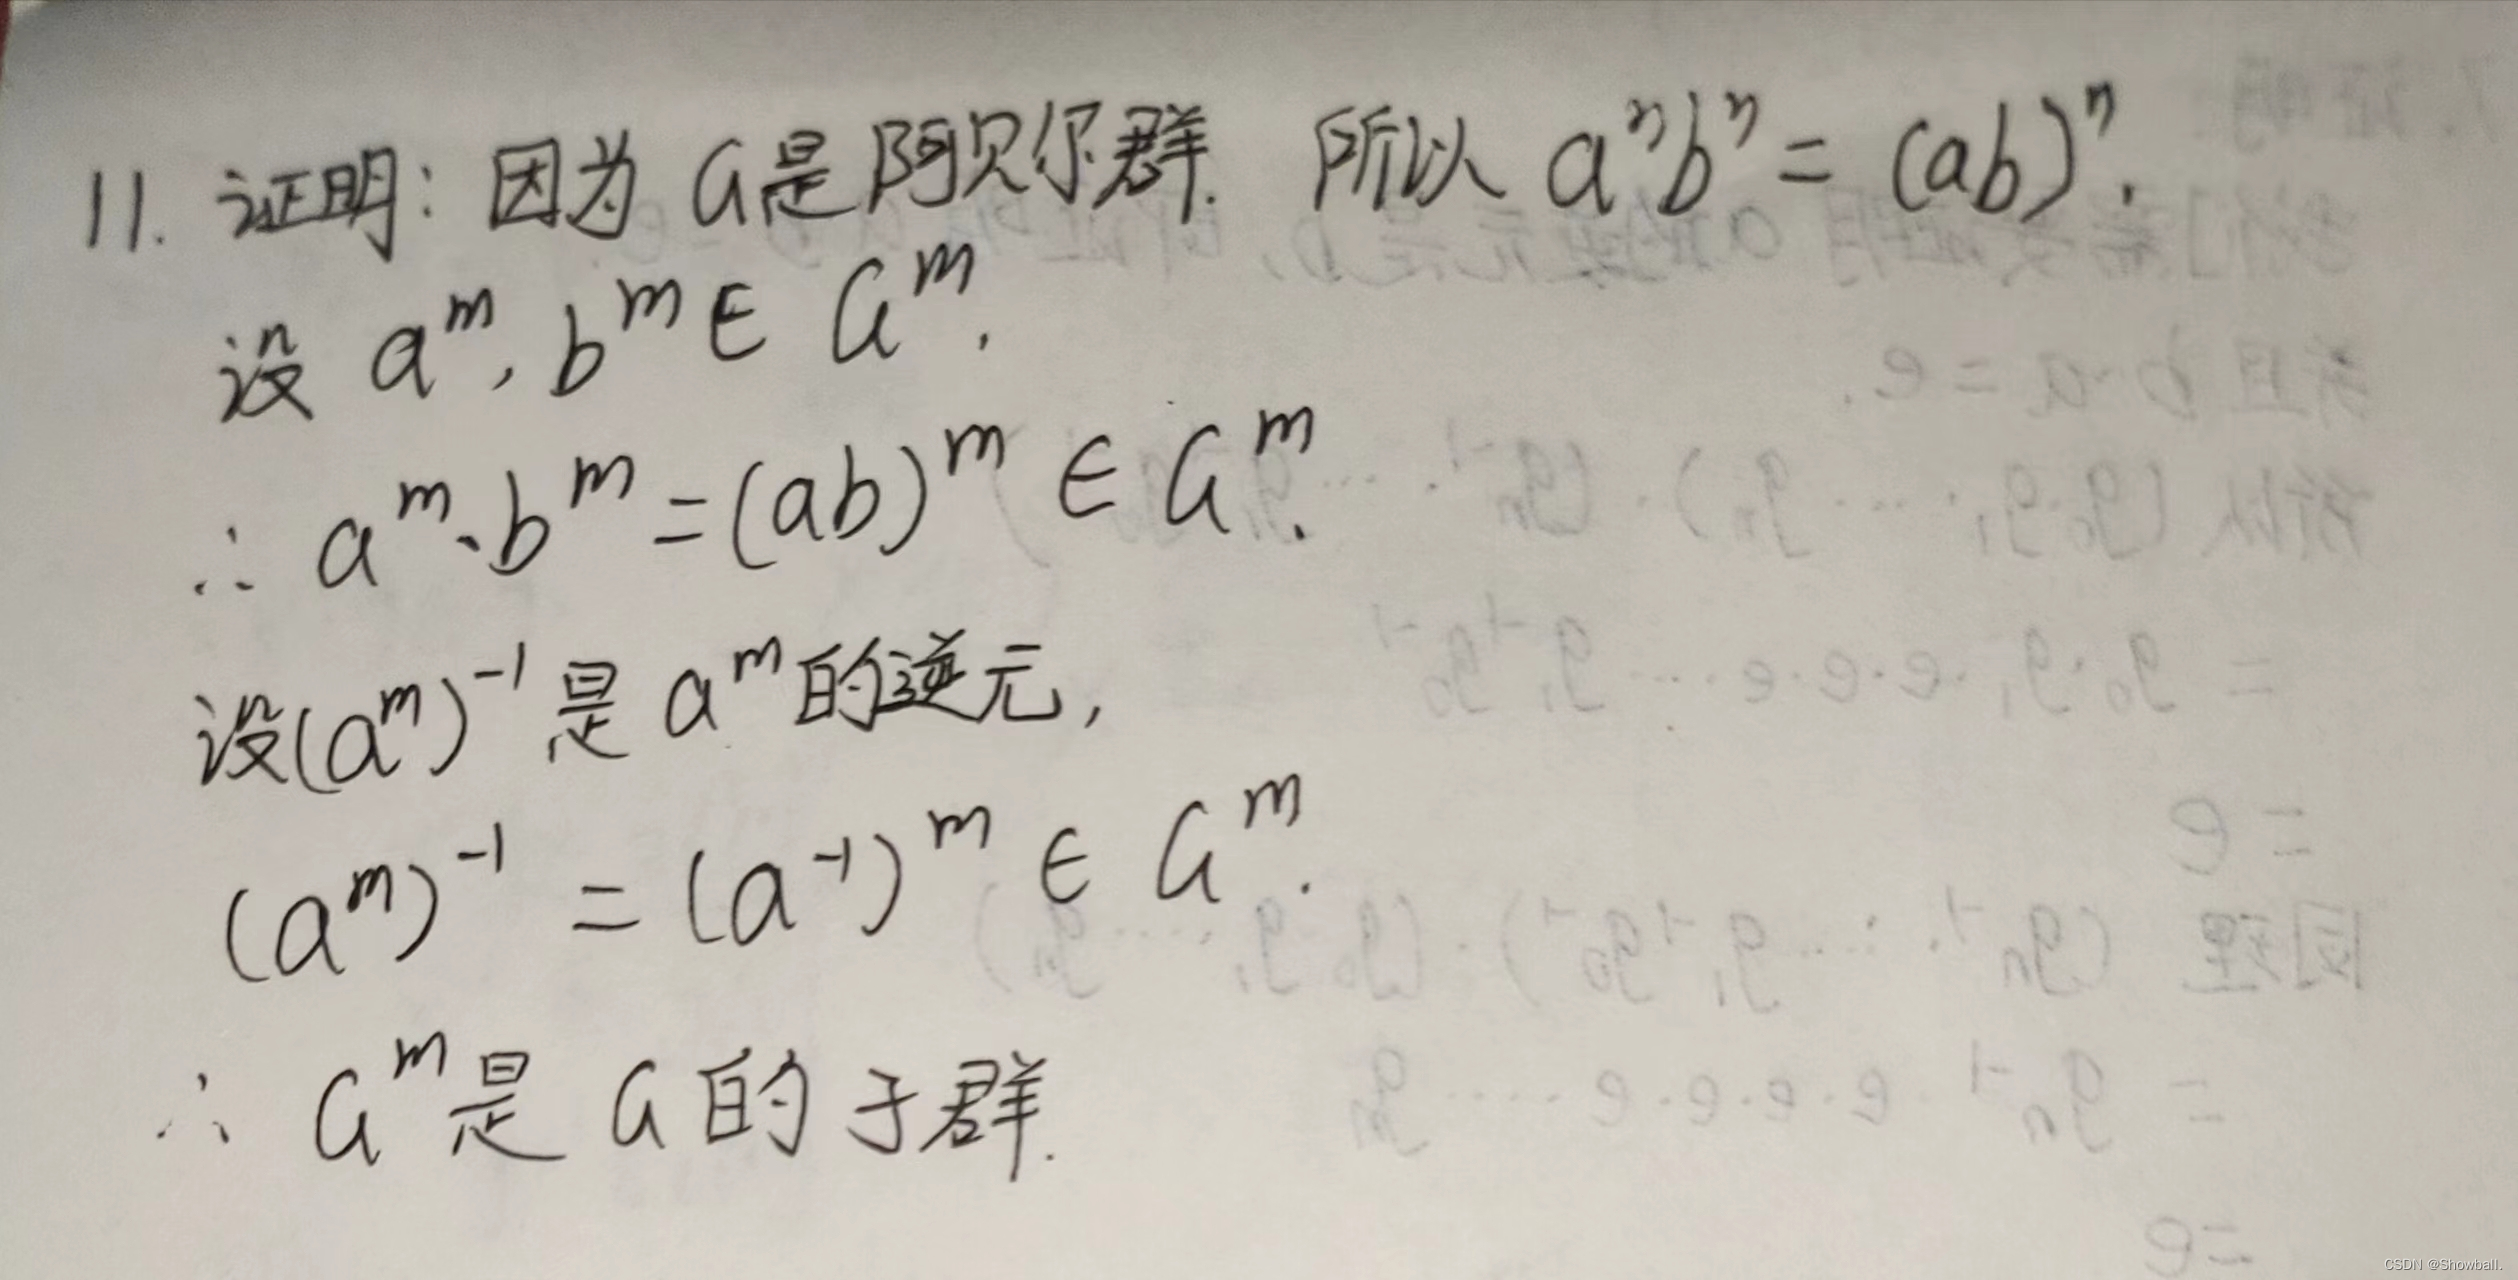 11. 证明: 因为 G是阿贝尔群. 所以 aⁿbⁿ = (ab)ⁿ.
设 aᵐ, bᵐ ∈ Gᵐ.
∴ aᵐ·bᵐ = (ab)ᵐ ∈ Gᵐ.
设(aᵐ)⁻¹ 是 aᵐ的逆元,
(aᵐ)⁻¹ = (a⁻¹)ᵐ ∈ Gᵐ.
∴ Gᵐ是 G 的子群.
CSDN @Showball.